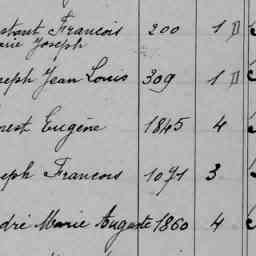 François 200 1
Marie Joseph
Joseph Jean Louis 309 1
Ernest Eugène 1845 4
Joseph François 1071 3
André Marie Auguste 1860 4